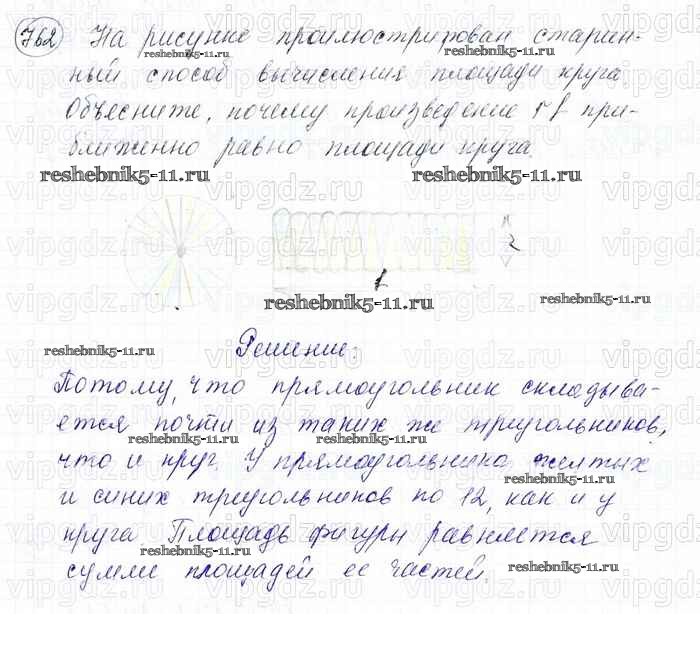 762 На рисунке проиллюстрирован старин-
ный способ вычисления площади круга.
Объясните, почему произведение rl при-
ближенно равно площади круга.
reshebnik5-11.ru reshebnik5-11.ru
r
l
reshebnik5-11.ru reshebnik5-11.ru
reshebnik5-11.ru
Решение:
Потому, что прямоугольник складыва-
ется почти из таких же треугольников,
reshebnik5-11.ru reshebnik5-11.ru
что и круг. У прямоугольника желтых
reshebnik5-11.ru
и синих треугольников по 12, как и у
круга. Площадь фигуры равняется
reshebnik5-11.ru
сумме площадей ее частей.
reshebnik5-11.ru
vipgdz.ru